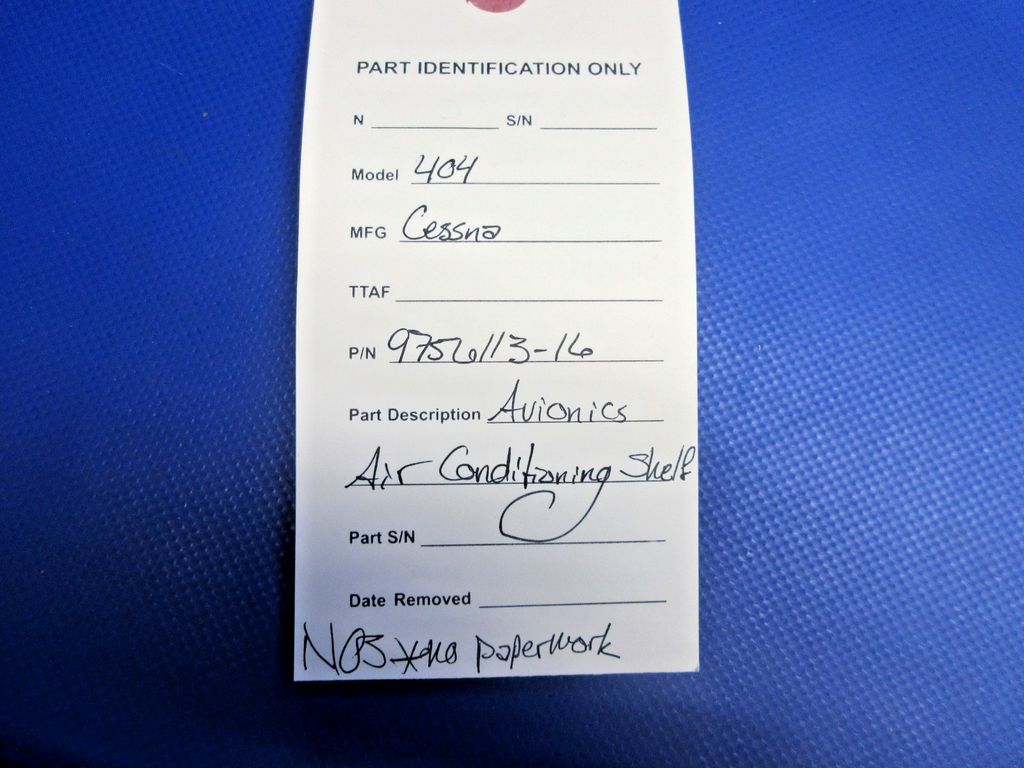 PART IDENTIFICATION ONLY
N S/N
Model 404
MFG Cessna
TTAF
P/N 9756113-16
Part Description Avionics
Air Conditioning Shelf
Part S/N
Date Removed
NOS *no paperwork